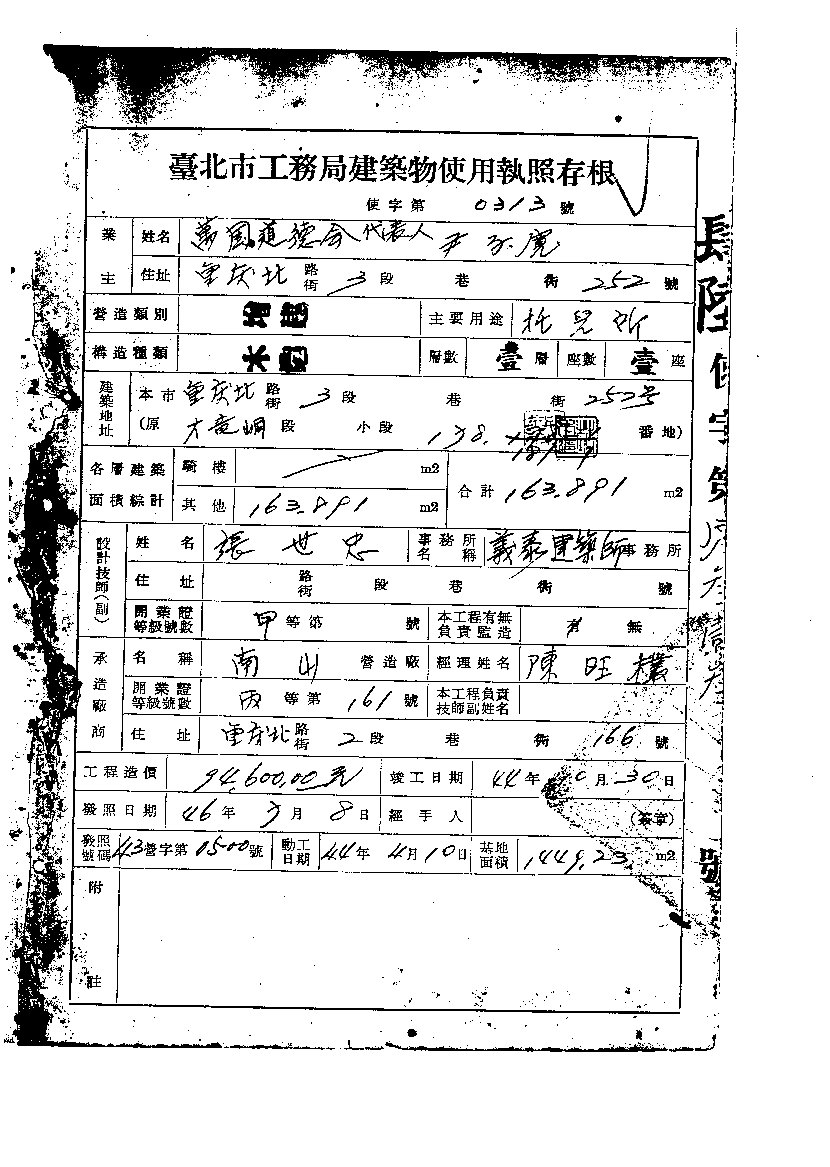 臺北市工務局建築物使用執照存根
使字第 0313 號
業主 姓名 萬国道德会代表人
住址 重庆北 路街 3 段 巷 街 252 號
營造類別 增建 主要用途 托兒所
構造種類 木造 層數 壹 層 座數 壹 座
建築地址 本市 重庆北 路街 3 段 巷 街 252号
(原 大竜峒 段 小段 138. 番地)
各層建築面積綜計 騎樓 m2
其他 163.891 m2 合計 163.891 m2
設計技師(副) 姓名 張世忠 事務所名稱 義泰建築師事務所
住址 路街 段 巷 街 號
開業證等級號數 甲等第 號 本工程有無負責監造 有 無
承造廠商 名稱 南山 營造廠 經理姓名 陳旺
開業證等級號數 丙等第 161 號 本工程負責技師副姓名
住址 重庆北 路街 2 段 巷 街 166 號
工程造價 94,600.00元 竣工日期 44年10月30日
發照日期 46年3月8日 經手人 (簽章)
發照號碼 43營字第1500號 動工日期 44年4月10日 基地面積 1449.23 m2
附註
肆陸使字第 號